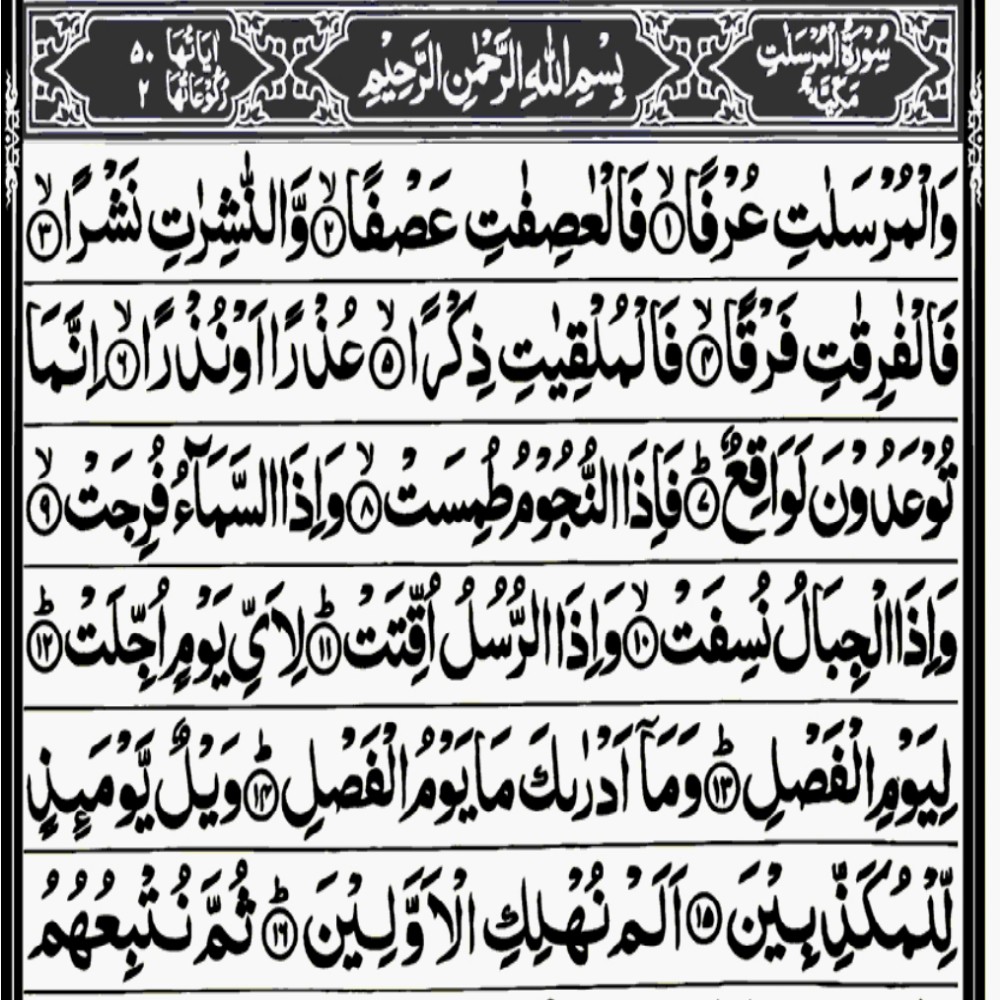 سُوْرَةُ الْمُرْسَلٰتِ
مَكِّيَّةٌ
بِسْمِ اللّٰهِ الرَّحْمٰنِ الرَّحِيْمِ
اٰيَاتُهَا ٥٠
رُكُوْعَاتُهَا ٢
وَالْمُرْسَلٰتِ عُرْفًا ۙ﴿١﴾ فَالْعٰصِفٰتِ عَصْفًا ۙ﴿٢﴾ وَّالنّٰشِرٰتِ نَشْرًا ۙ﴿٣﴾
فَالْفٰرِقٰتِ فَرْقًا ۙ﴿٤﴾ فَالْمُلْقِيٰتِ ذِكْرًا ۙ﴿٥﴾ عُذْرًا اَوْ نُذْرًا ۙ﴿٦﴾ اِنَّمَا
تُوْعَدُوْنَ لَوَاقِعٌ ؕ﴿٧﴾ فَاِذَا النُّجُوْمُ طُمِسَتْ ۙ﴿٨﴾ وَاِذَا السَّمَآءُ فُرِجَتْ ۙ﴿٩﴾
وَاِذَا الْجِبَالُ نُسِفَتْ ۙ﴿١٠﴾ وَاِذَا الرُّسُلُ اُقِّتَتْ ؕ﴿١١﴾ لِاَيِّ يَوْمٍ اُجِّلَتْ ؕ﴿١٢﴾
لِيَوْمِ الْفَصْلِ ۚ﴿١٣﴾ وَمَآ اَدْرٰىكَ مَا يَوْمُ الْفَصْلِ ؕ﴿١٤﴾ وَيْلٌ يَّوْمَىِٕذٍ
لِّلْمُكَذِّبِيْنَ ﴿١٥﴾ اَلَمْ نُهْلِكِ الْاَوَّلِيْنَ ؕ﴿١٦﴾ ثُمَّ نُتْبِعُهُمُ